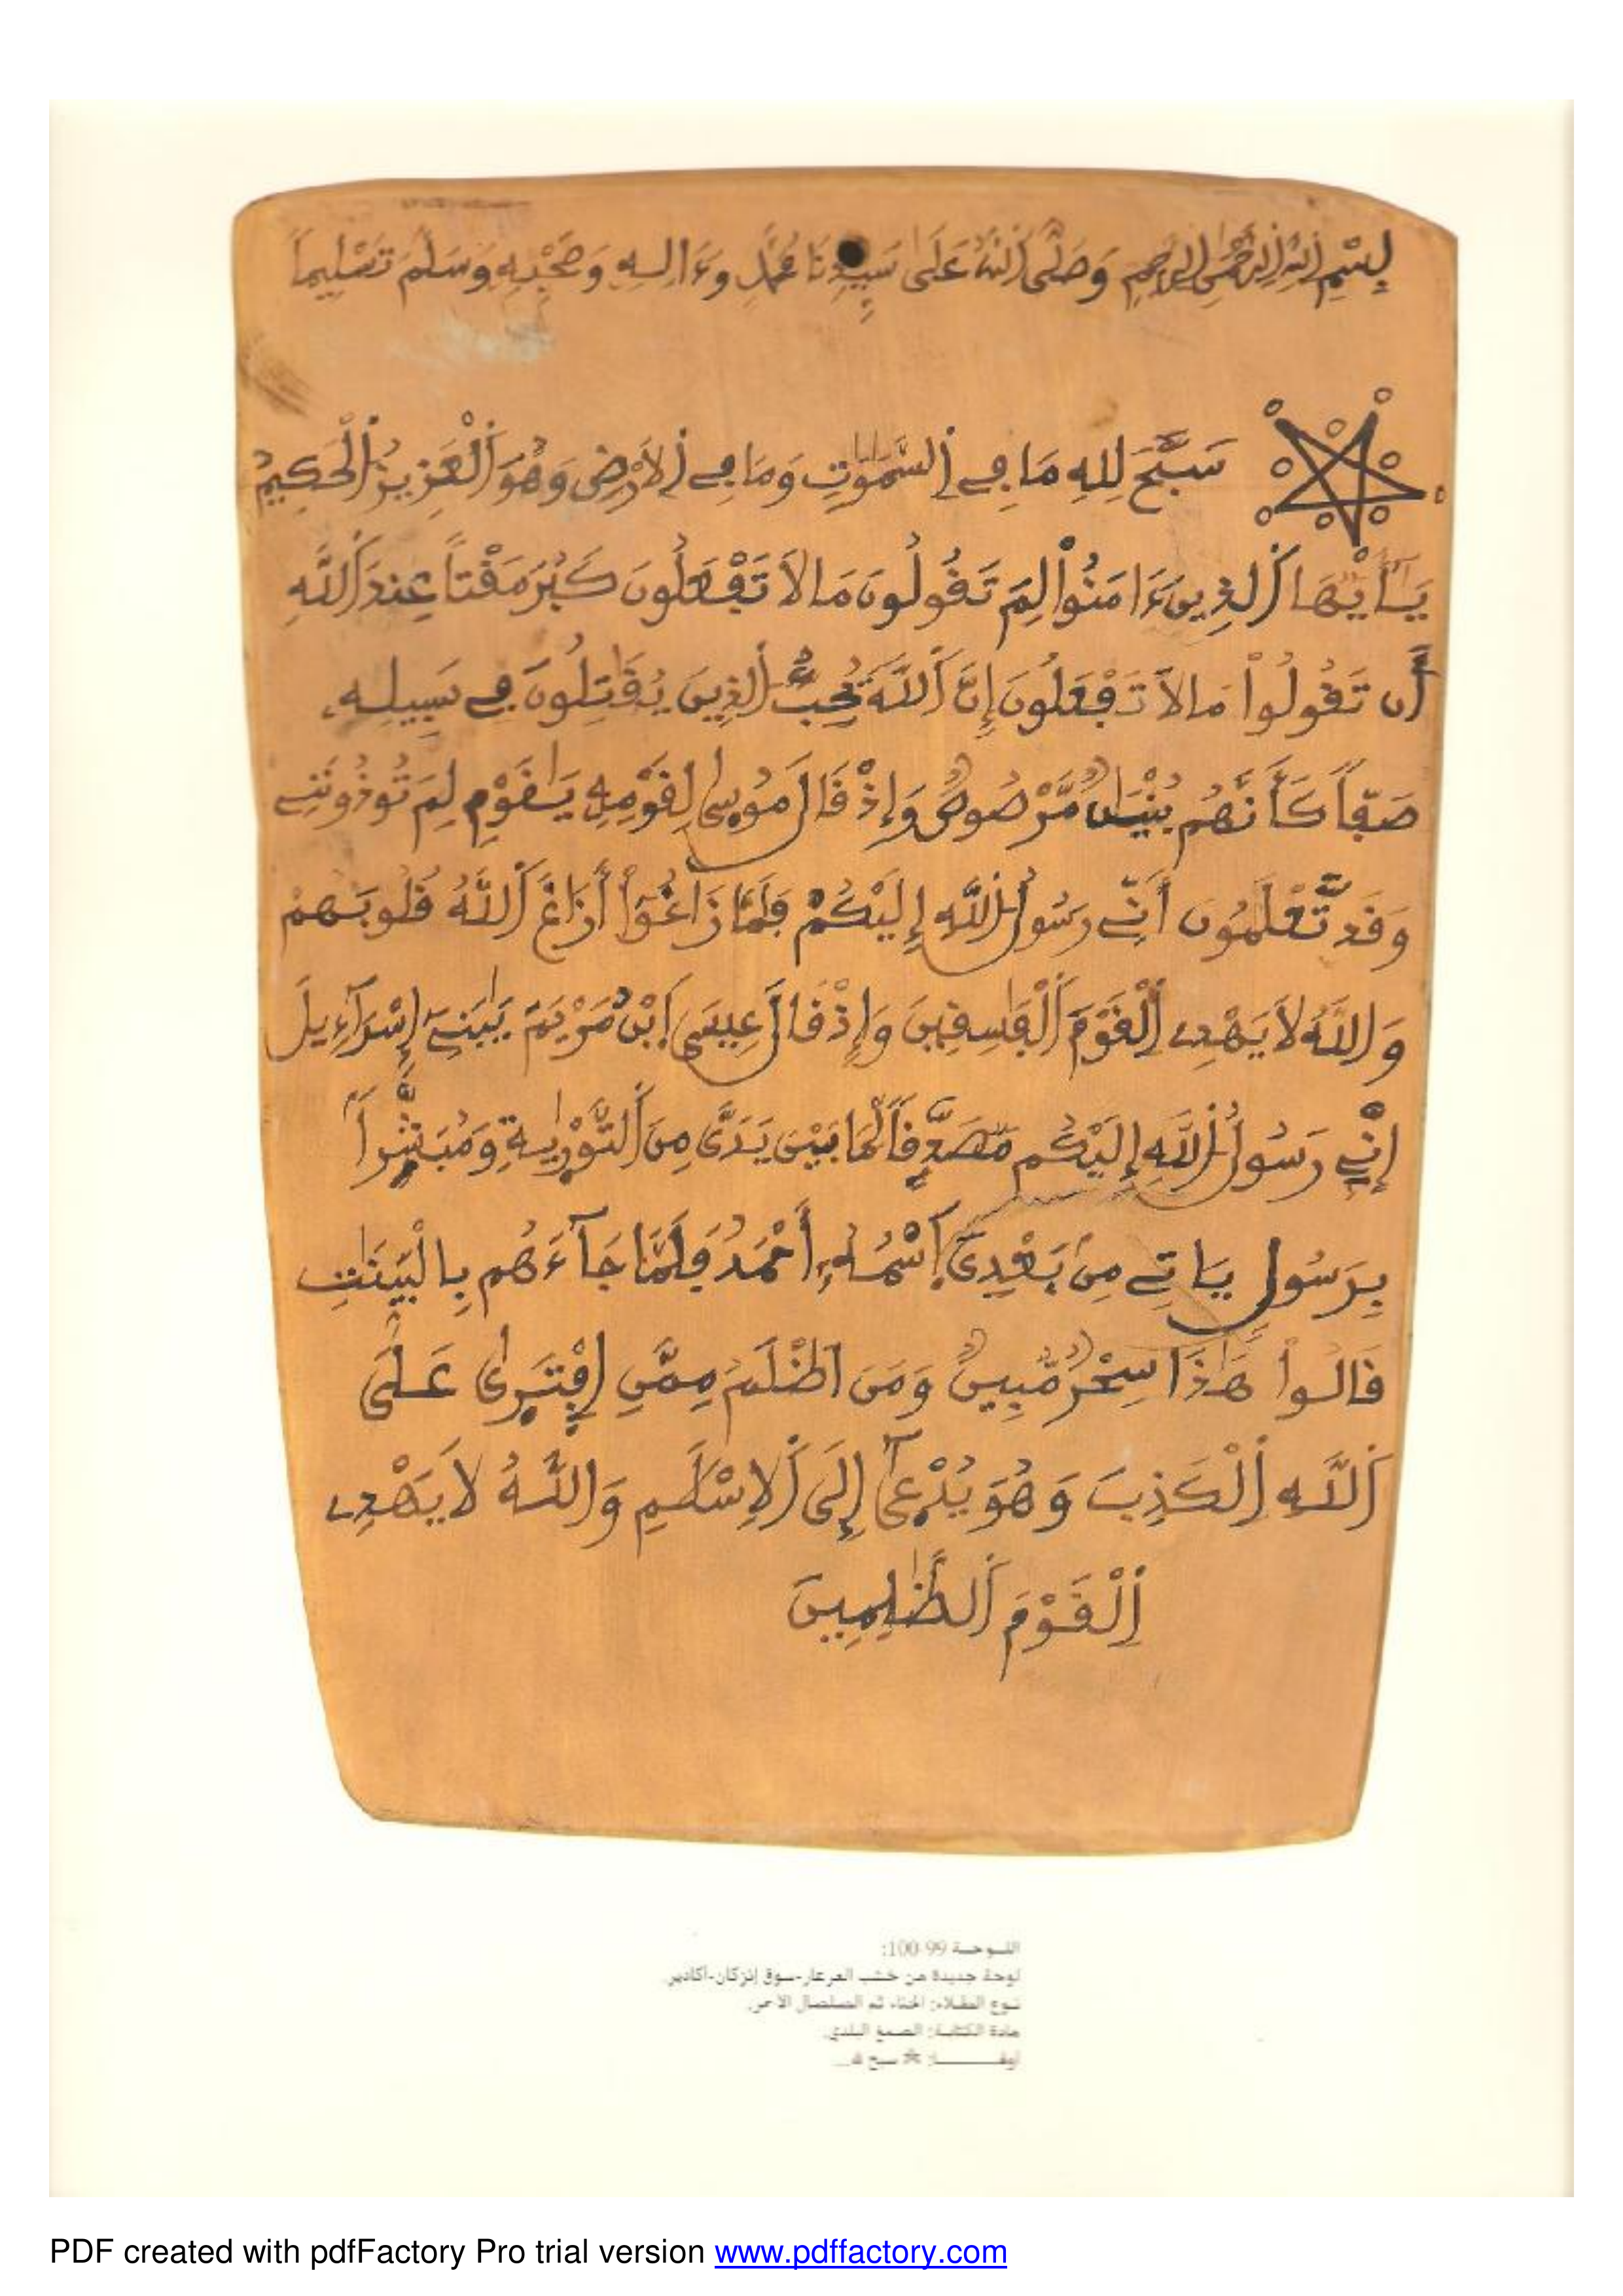 بِسْمِ اللهِ الرَّحْمٰنِ الرَّحِيمِ وَصَلَّى اللهُ عَلَى سَيِّدِنَا مُحَمَّدٍ وَءَالِهِ وَصَحْبِهِ وَسَلَّمَ تَسْلِيماً
سَبَّحَ لِلهِ مَا فِے اِ۬لسَّمَٰوَٰتِ وَمَا فِے اِ۬لَارْضِ وَهُوَ اَ۬لْعَزِيزُ اُ۬لْحَكِيمُ
يَٰٓأَيُّهَا اَ۬لذِينَ ءَامَنُواْ لِمَ تَقُولُونَ مَا لَا تَفْعَلُونَ كَبُرَ مَقْتاً عِندَ اَ۬للَّهِ
أَن تَقُولُواْ مَا لَا تَفْعَلُونَ إِنَّ اَ۬للَّهَ يُحِبُّ اُ۬لذِينَ يُقَٰتِلُونَ فِے سَبِيلِهِ
صَفّاً كَأَنَّهُم بُنْيَٰنٌ مَّرْصُوصٌ وَإِذْ قَالَ مُوسىٰ لِقَوْمِهِ يَٰقَوْمِ لِمَ تُوذُونَنِے
وَقَد تَّعْلَمُونَ أَنِّے رَسُولُ اُ۬للَّهِ إِلَيْكُمْ فَلَمَّا زَاغُوٓاْ أَزَاغَ اَ۬للَّهُ قُلُوبَهُمْ
وَاللَّهُ لَا يَهْدِے اِ۬لْقَوْمَ اَ۬لْفَٰسِقِينَ وَإِذْ قَالَ عِيسَى اَ۪بْنُ مَرْيَمَ يَٰبَنِےٓ إِسْرَآءِيلَ
إِنِّے رَسُولُ اُ۬للَّهِ إِلَيْكُم مُّصَدِّقاً لِّمَا بَيْنَ يَدَىَّ مِنَ اَ۬لتَّوْرَيٰةِ وَمُبَشِّراً
بِرَسُولٍ يَاتِے مِنۢ بَعْدِىَ اَ۪سْمُهُۥٓ أَحْمَدُ فَلَمَّا جَآءَهُم بِالْبَيِّنَٰتِ
قَالُواْ هَٰذَا سِحْرٌ مُّبِينٌ وَمَنَ اَظْلَمُ مِمَّنِ اِ۪فْتَرىٰ عَلَى
اَ۬للَّهِ اِ۬لْكَذِبَ وَهُوَ يُدْعىٰٓ إِلَى اَ۬لِاسْلَٰمِ وَاللَّهُ لَا يَهْدِے
اِ۬لْقَوْمَ اَ۬لظَّٰلِمِينَ
اللـوحـة 99-100:
لوحة جديدة من خشب العرعار-سوق إنزكان-أكادير.
نـوع الطـلاء: الحناء ثم الصلصال الأحمر.
مادة الكتابـة: الصمغ البلدي.
سبح لله...
PDF created with pdfFactory Pro trial version www.pdffactory.com